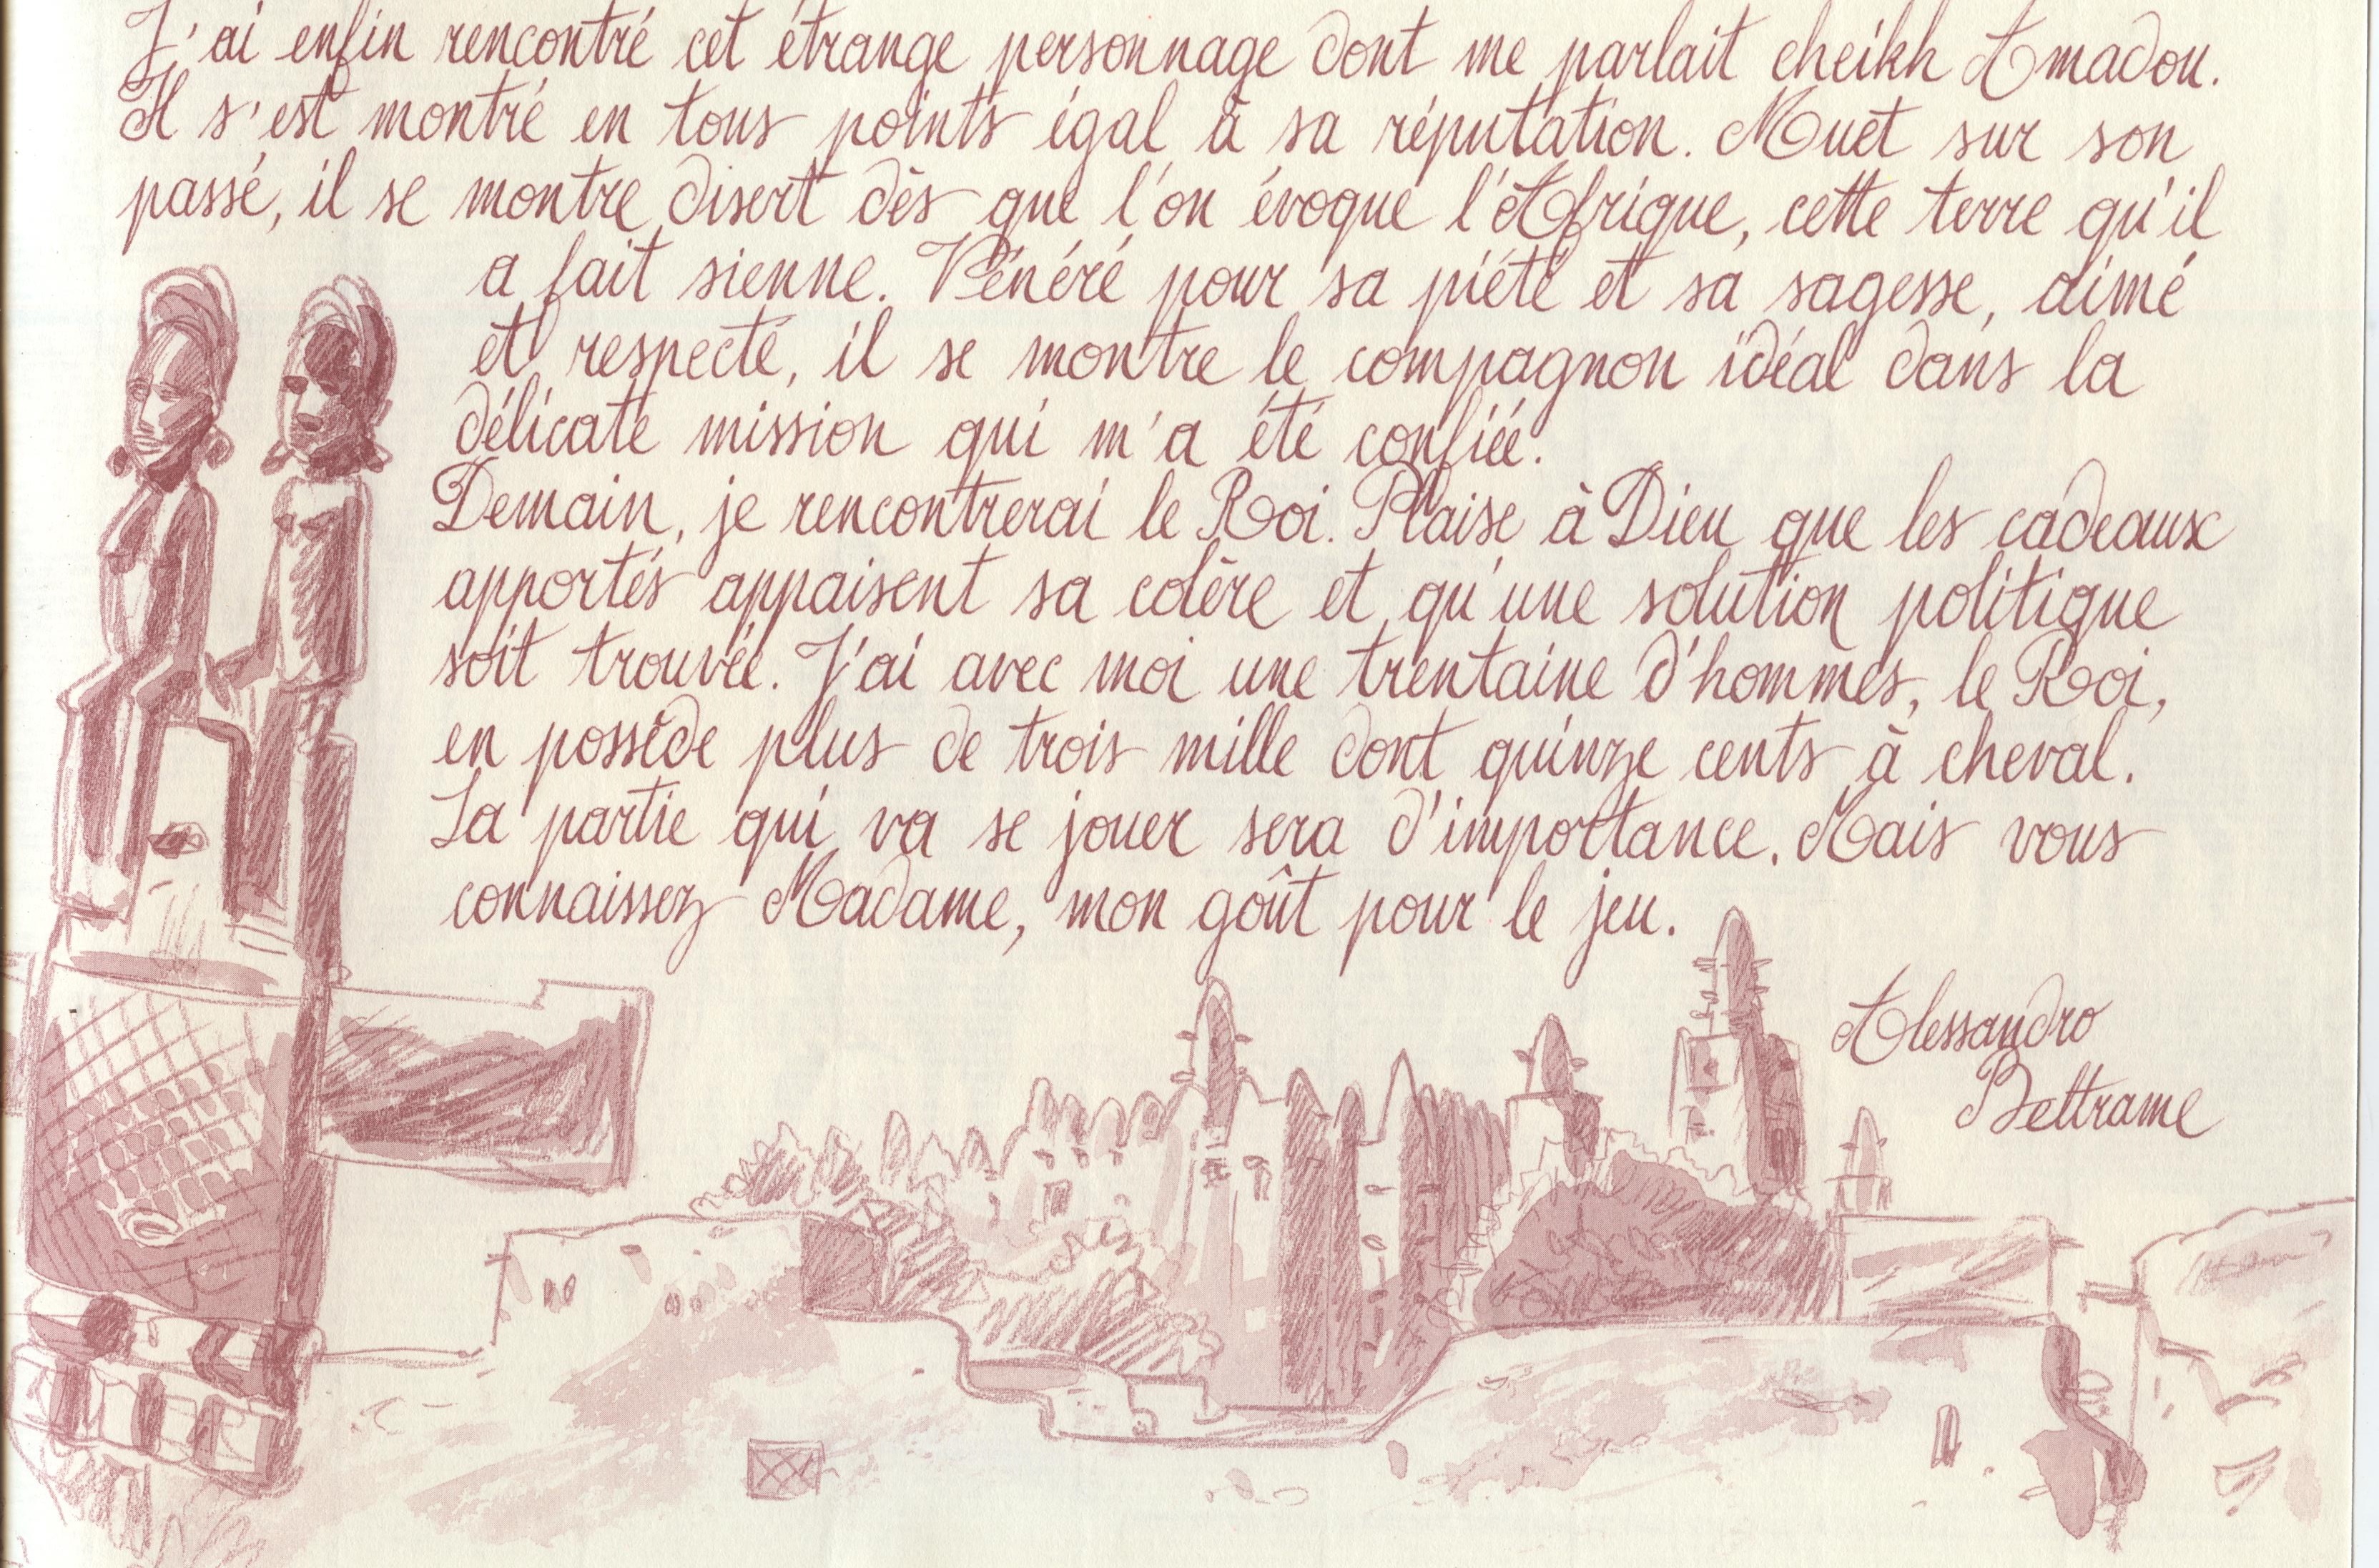 J'ai enfin rencontré cet étrange personnage dont me parlait cheikh Amadou.
Il s'est montré en tous points égal à sa réputation. Muet sur son
passé, il se montre disert dès que l'on évoque l'Afrique, cette terre qu'il
a fait sienne. Vénéré pour sa piété et sa sagesse, aimé
et respecté, il se montre le compagnon idéal dans la
délicate mission qui m'a été confiée.
Demain, je rencontrerai le Roi. Plaise à Dieu que les cadeaux
apportés appaisent sa colère et qu'une solution politique
soit trouvée. J'ai avec moi une trentaine d'hommes, le Roi,
en possède plus de trois mille dont quinze cents à cheval.
La partie qui va se jouer sera d'importance. Mais vous
connaissez Madame, mon goût pour le jeu.
Alessandro
Beltrame